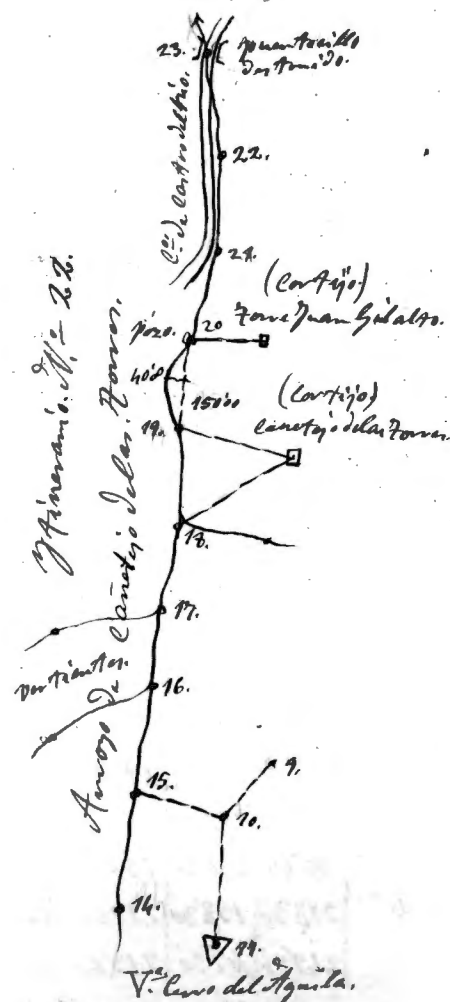 23.
puentecillo
destruido.
Cno. de Castro del Rio.
22.
21.
(Cortijo)
Torre Juan Gil alto.
pózo.
20
40'8
150'00
(Cortijo)
Cañetejo de las Torres.
19.
Ytinerario. N.º 22.
Arroyo de Cañetejo de las Torres.
18.
17.
vertientes.
16.
15.
9.
10.
14.
V.e Cerro del Aguila.